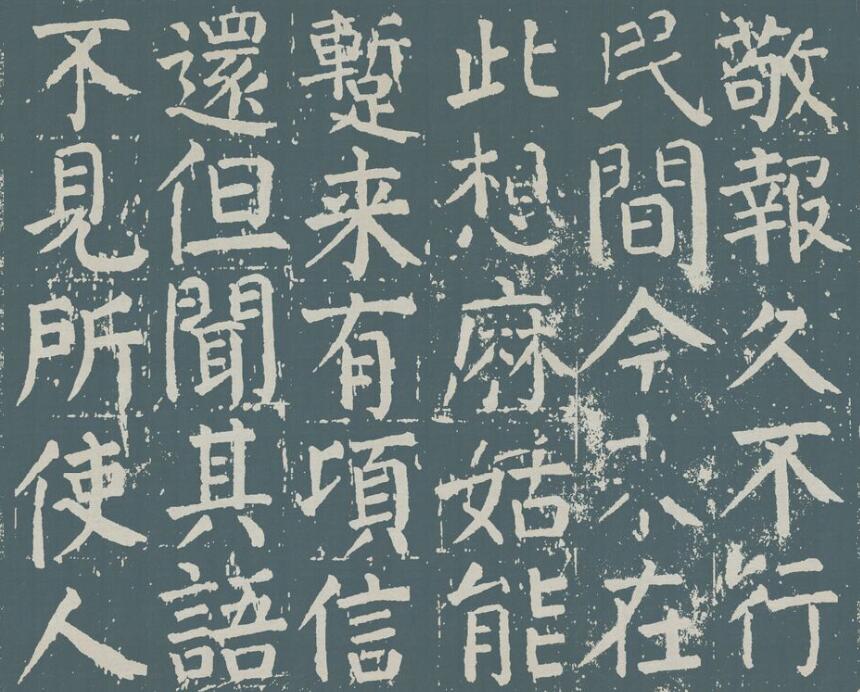 敬報久不行
民間今来在
此想麻姑能
蹔来有頃信
還但聞其語
不見所使人